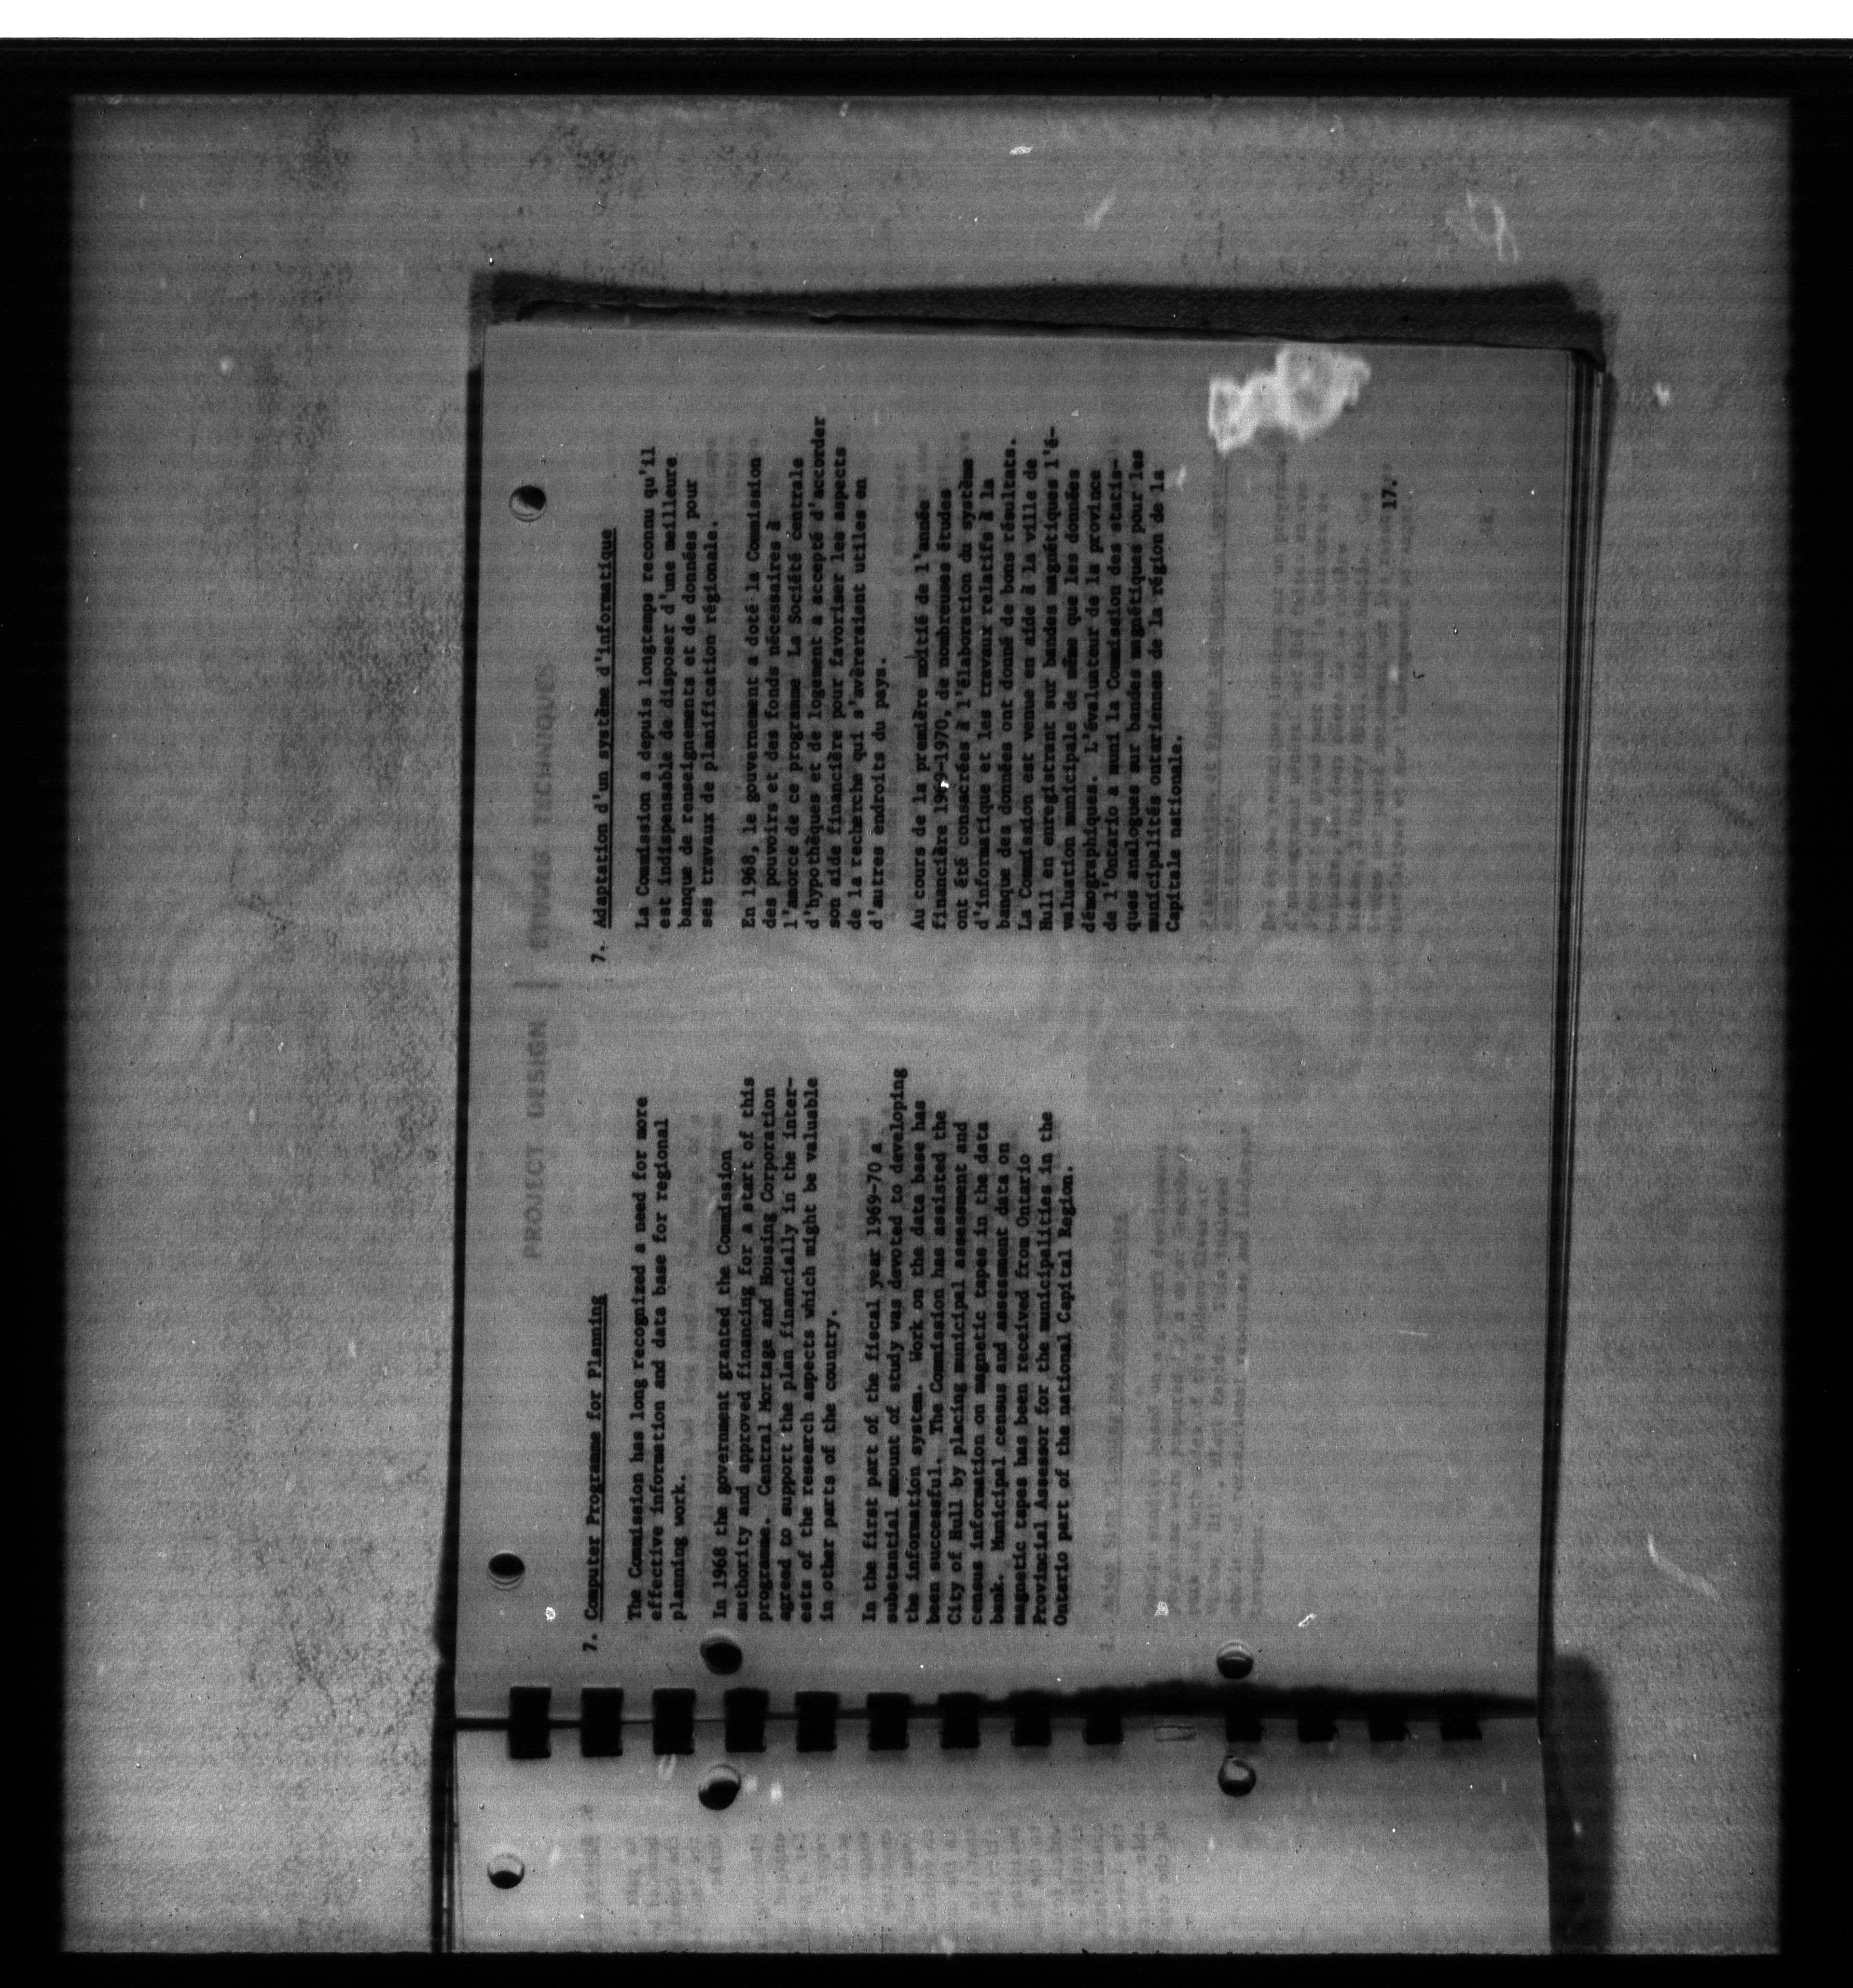 PROJECT DESIGN | ÉTUDES TECHNIQUES
7. Computer Programme for Planning
The Commission has long recognized a need for more
effective information and data base for regional
planning work.
In 1968 the government granted the Commission
authority and approved financing for a start of this
programme. Central Mortage and Housing Corporation
agreed to support the plan financially in the inter-
ests of the research aspects which might be valuable
in other parts of the country.
In the first part of the fiscal year 1969-70 a
substantial amount of study was devoted to developing
the information system. Work on the data base has
been successful. The Commission has assisted the
City of Hull by placing municipal assessment and
census information on magnetic tapes in the data
bank. Municipal census and assessment data on
magnetic tapes has been received from Ontario
Provincial Assessor for the municipalities in the
Ontario part of the national Capital Region.
7. Adaptation d'un système d'informatique
La Commission a depuis longtemps reconnu qu'il
est indispensable de disposer d'une meilleure
banque de renseignements et de données pour
ses travaux de planification régionale.
En 1968, le gouvernement a doté la Commission
des pouvoirs et des fonds nécessaires à
l'amorce de ce programme. La Société centrale
d'hypothèques et de logement a accepté d'accorder
son aide financière pour favoriser les aspects
de la recherche qui s'avèreraient utiles en
d'autres endroits du pays.
Au cours de la première moitié de l'année
financière 1969-1970, de nombreuses études
ont été consacrées à l'élaboration du système
d'informatique et les travaux relatifs à la
banque des données ont donné de bons résultats.
La Commission est venue en aide à la ville de
Hull en enregistrant sur bandes magnétiques l'é-
valuation municipale de même que les données
démographiques. L'évaluateur de la province
de l'Ontario a muni la Commission des statis-
ques analogues sur bandes magnétiques pour les
municipalités ontariennes de la région de la
Capitale nationale.
17.